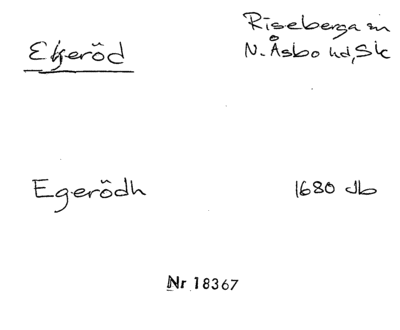 Ekeröd
Riseberga sn
N. Åsbo hd, Sk
Egerödh
1680 Jb
Nr 18367